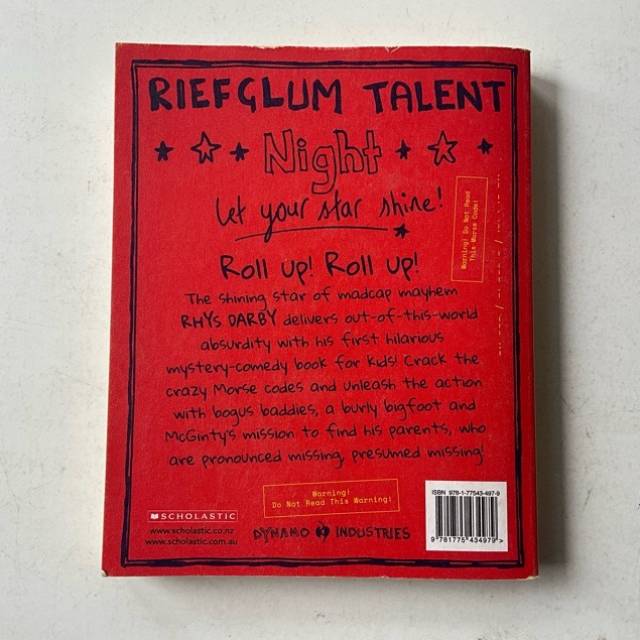 RIEFGLUM TALENT
Night
Let your star shine!
Warning! Do Not Read
This Morse Code!
Roll up! Roll up!
The shining star of madcap mayhem
RHYS DARBY delivers out-of-this-world
absurdity with his first hilarious
mystery-comedy book for kids! Crack the
crazy Morse codes and unleash the action
with bogus baddies, a burly bigfoot and
McGinty's mission to find his parents, who
are pronounced missing, presumed missing!
Warning!
Do Not Read This Warning!
SCHOLASTIC
www.scholastic.co.nz
www.scholastic.com.au
DYNAMO INDUSTRIES
ISBN 978-1-77543-497-9
9 781775 434979 >